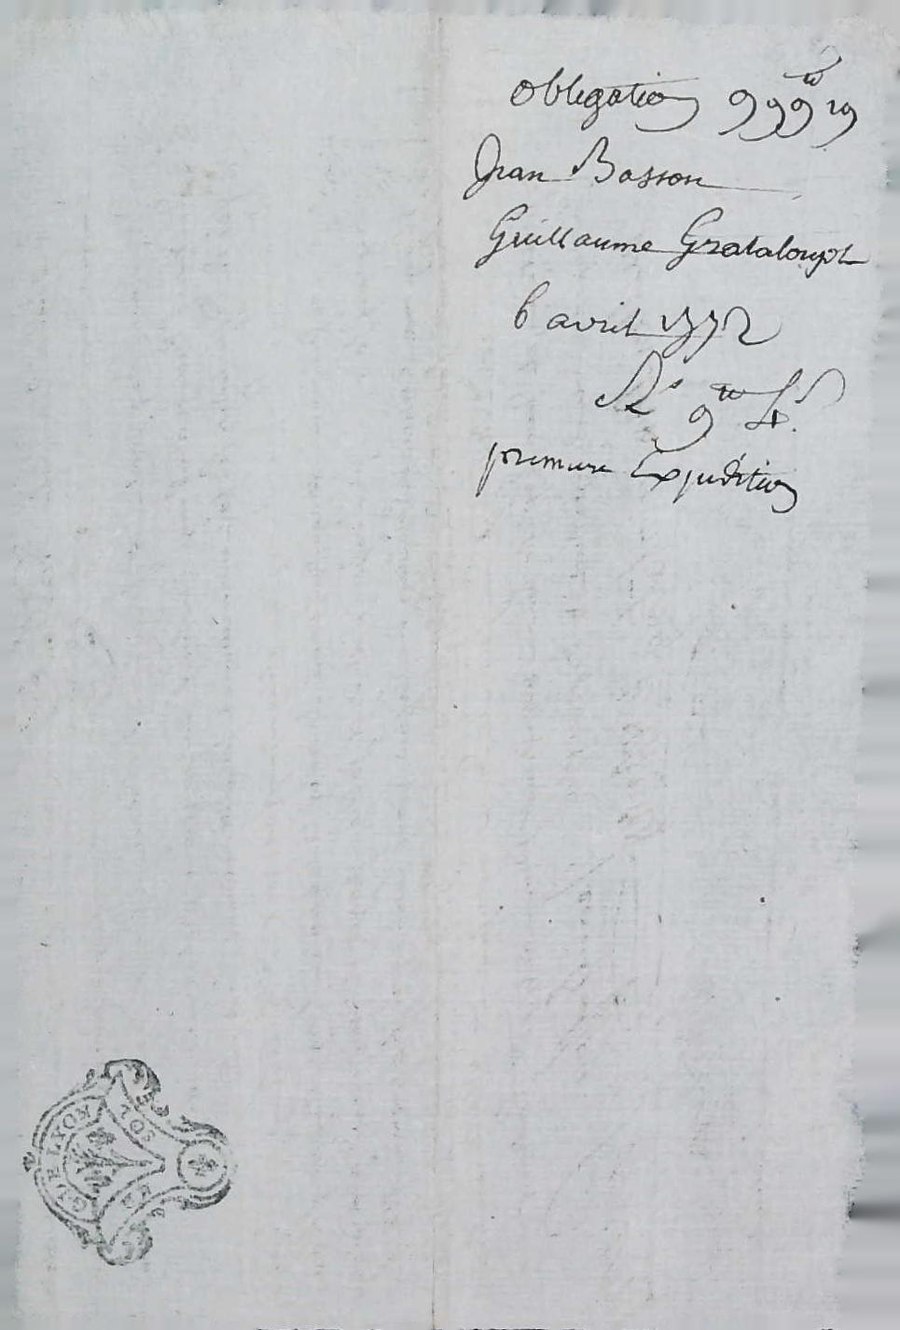 obligation 999ᵗᵗ 19
Jean Basson
Guillaume Grataloupt
6 avril 1772
9ᵗᵗ
premiere Expedition
GNE LYON
SOL